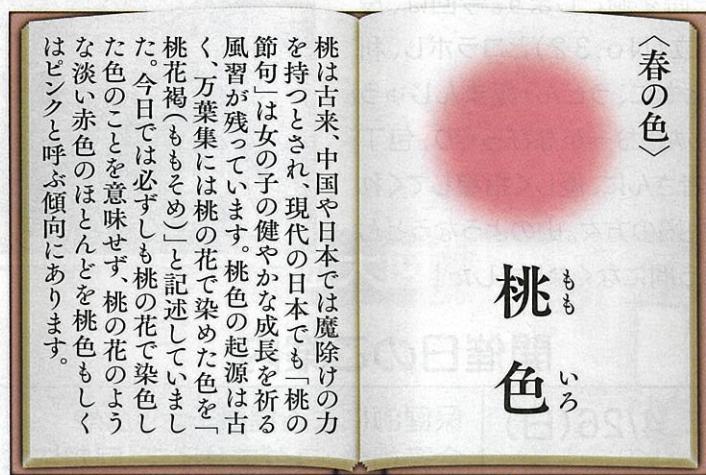 〈春の色〉
桃色
もも
いろ
桃は古来、中国や日本では魔除けの力
を持つとされ、現代の日本でも「桃の
節句」は女の子の健やかな成長を祈る
風習が残っています。桃色の起源は古
く、万葉集には桃の花で染めた色を「
桃花褐(ももそめ)」と記述していまし
た。今日では必ずしも桃の花で染色し
た色のことを意味せず、桃の花のよう
な淡い赤色のほとんどを桃色もしく
はピンクと呼ぶ傾向にあります。